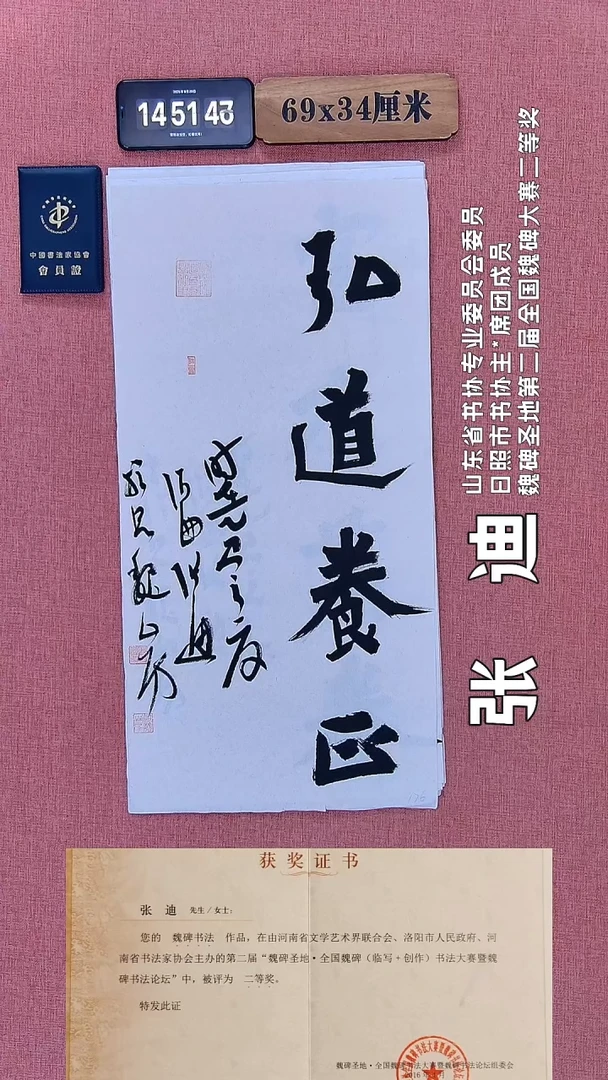 14 51 43
69x34厘米
中國書法家協會
會員證
弘道養正
山东省书协专业委员会委员
日照市书协主*席团成员
魏碑圣地第二届全国魏碑大赛二等奖
张 迪
获奖证书
张 迪 先生/女士:
您的 魏碑书法 作品,在由河南省文学艺术界联合会、洛阳市人民政府、河
南省书法家协会主办的第二届“魏碑圣地·全国魏碑(临写+创作)书法大赛暨魏
碑书法论坛”中,被评为 二等奖。
特发此证
魏碑圣地·全国魏碑书法大赛暨魏碑书法论坛组委会